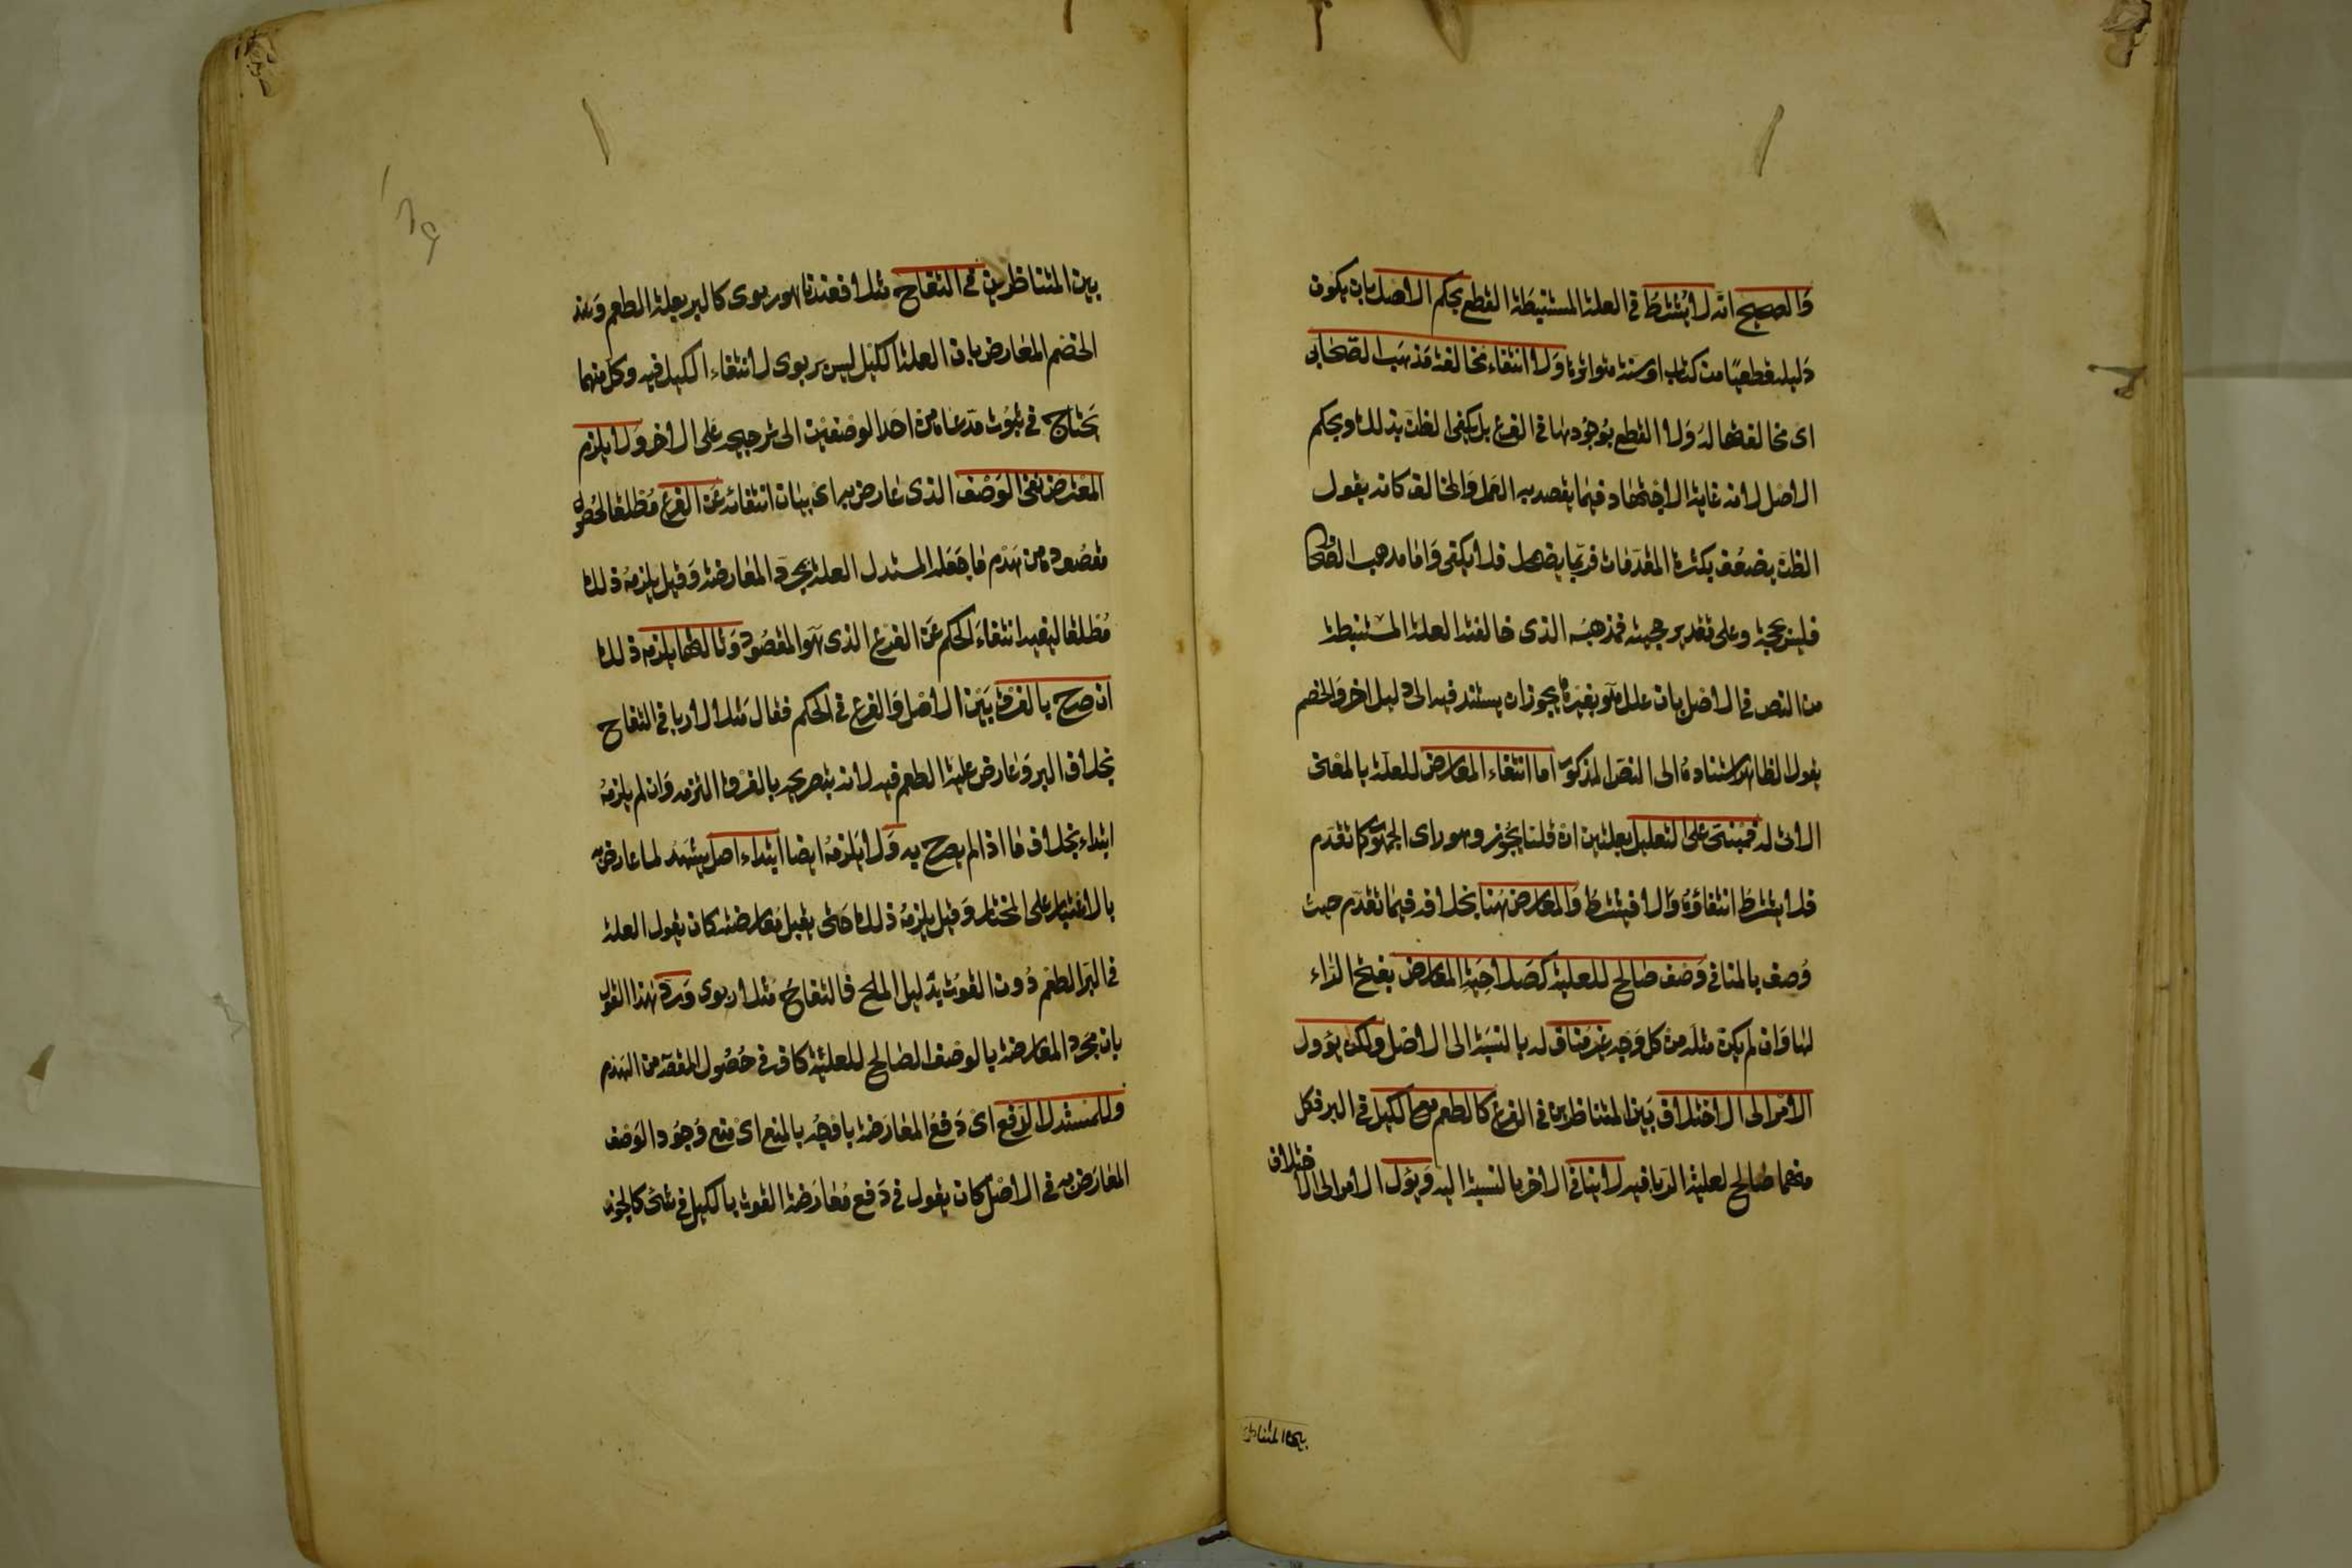 والصحيح انه لا يشترط في العلة المستنبطة القطع بحكم الاصل بان يكون
دليله قطعيا من كتاب او سنة متواترة ولا انتفاء مخالفة مذهب الصحابي
اى مخالفتها له ولا القطع بوجودها في الفرع بل يكفى الظن بذلك وبحكم
الاصل لانه غاية الاجتهاد فيما يقصد به العمل والمخالف كانه يقول
الظن يضعف بكثرة المقدمات فربما يضمحل فلا يكفى واما مذهب الصحا
فليس بحجة وعلى تقدير حجيته فمذهبه الذى خالفته العلة المستنبطة
من النص في الاصل بان علل هو بغيرها يجوز ان يستند فيه الى دليل اخر والخصم
يقول الظاهر استناده الى النص المذكور اما انتفاء المعارض للعلة بالمعنى
الاتى له فمبنى على التعليل بعلتين ان قلنا يجوز وهو راى الجمهور كما تقدم
فلا يشترط انتفاؤه والا فيشترط والمعارض هنا بخلافه فيما تقدم حيث
وصف بالمنافي وصف صالح للعلية كصلاحية المعارض بفتح الراء
لها وان لم يكن مثله من كل وجه غير مناف له بالنسبة الى الاصل ولكن يؤول
الامر الى الاختلاف بين المتناظرين في الفرع كالطعم مع الكيل في البر فكل
منهما صالح لعلية الربا فيه لا ينافي الاخر بالنسبة اليه ويؤل الامر الى الاختلاف
بين المتناظرين
بين المتناظرين في التفاح مثلا فعندنا هو ربوى كالبر بعلة الطعم وعند
الخصم المعارض بان العلة الكيل ليس بربوى لانتفاء الكيل فيه وكل منهما
يحتاج في ثبوت مدعاه من احد الوصفين الى ترجيحه على الاخر ولا يلزم
المعترض نفى الوصف الذى عارض به اى بيان انتفائه عن الفرع مطلقا لحصول
مقصوده من هدم ما جعله المستدل العلة بمجرد المعارضة وقيل يلزمه ذلك
مطلقا ليفيد انتفاء الحكم عن الفرع الذى هو المقصود وثالثها يلزمه ذلك
ان صرح بالفرق بين الاصل والفرع في الحكم فقال مثلا لا ربا في التفاح
بخلاف البر وعارض علية الطعم فيه لانه بتصريحه بالفرق التزمه وان لم يلزمه
ابتداء بخلاف ما اذا لم يصرح به ولا يلزمه ايضا ابتداء اصل يشهد لما عارض به
بالاعتبار على المختار وقيل يلزمه ذلك حتى يقبل معارضته كان يقول العلة
في البر الطعم دون القوت بدليل الملح فالتفاح مثلا ربوى ورد هذا القول
بان مجرد المعارضة بالوصف الصالح للعلية كاف في حصول المقصد من الهدم
وللمستدل الدفع اى دفع المعارضة باوجه بالمنع اى منع وجود الوصف
المعارض به في الاصل كان يقول في دفع معارضة القوت بالكيل في شئ كالجوز